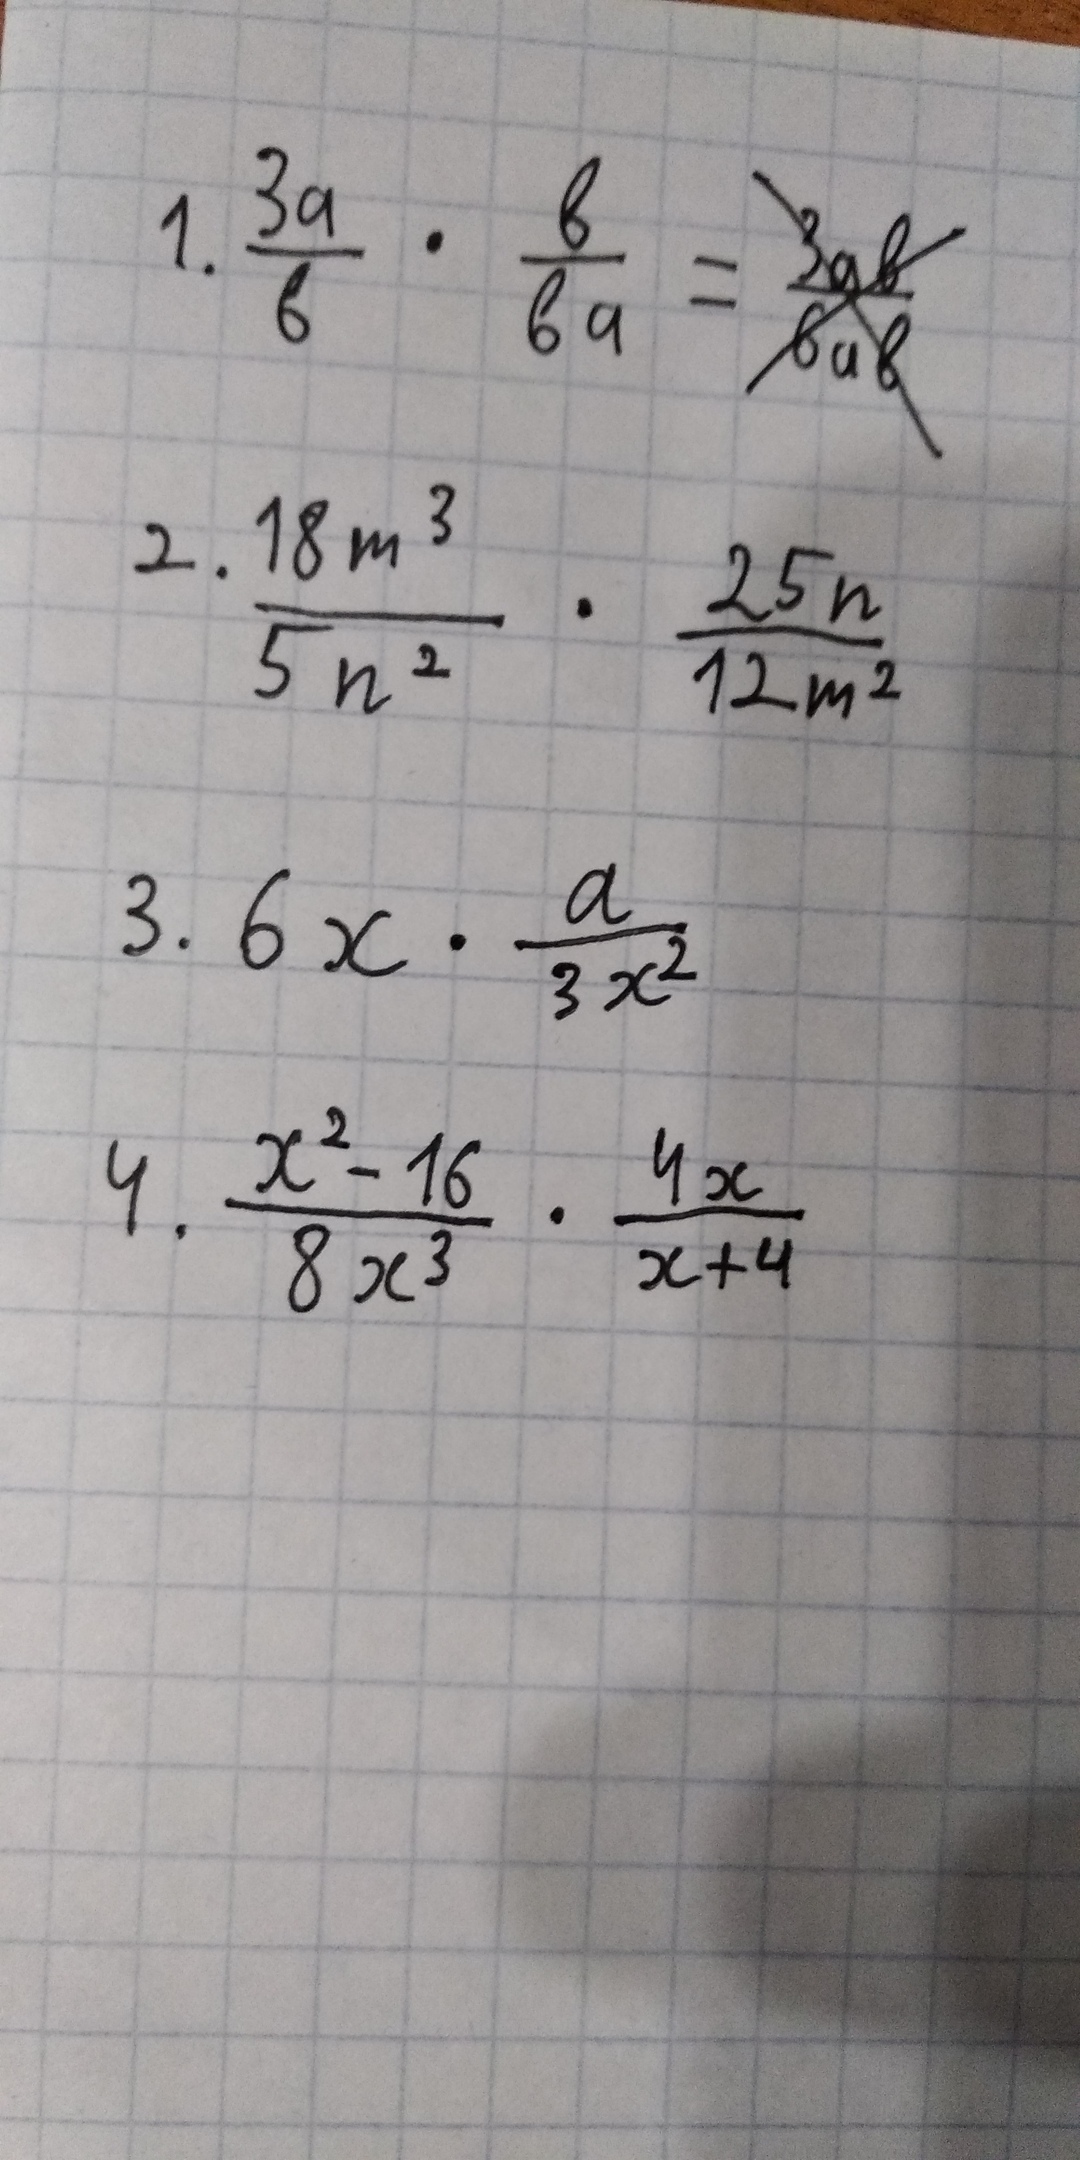 1. 3a/в · в/вa = 3aв/вaв
2. 18m³/5n² · 25n/12m²
3. 6x · a/3x²
4. x²-16/8x³ · 4x/x+4